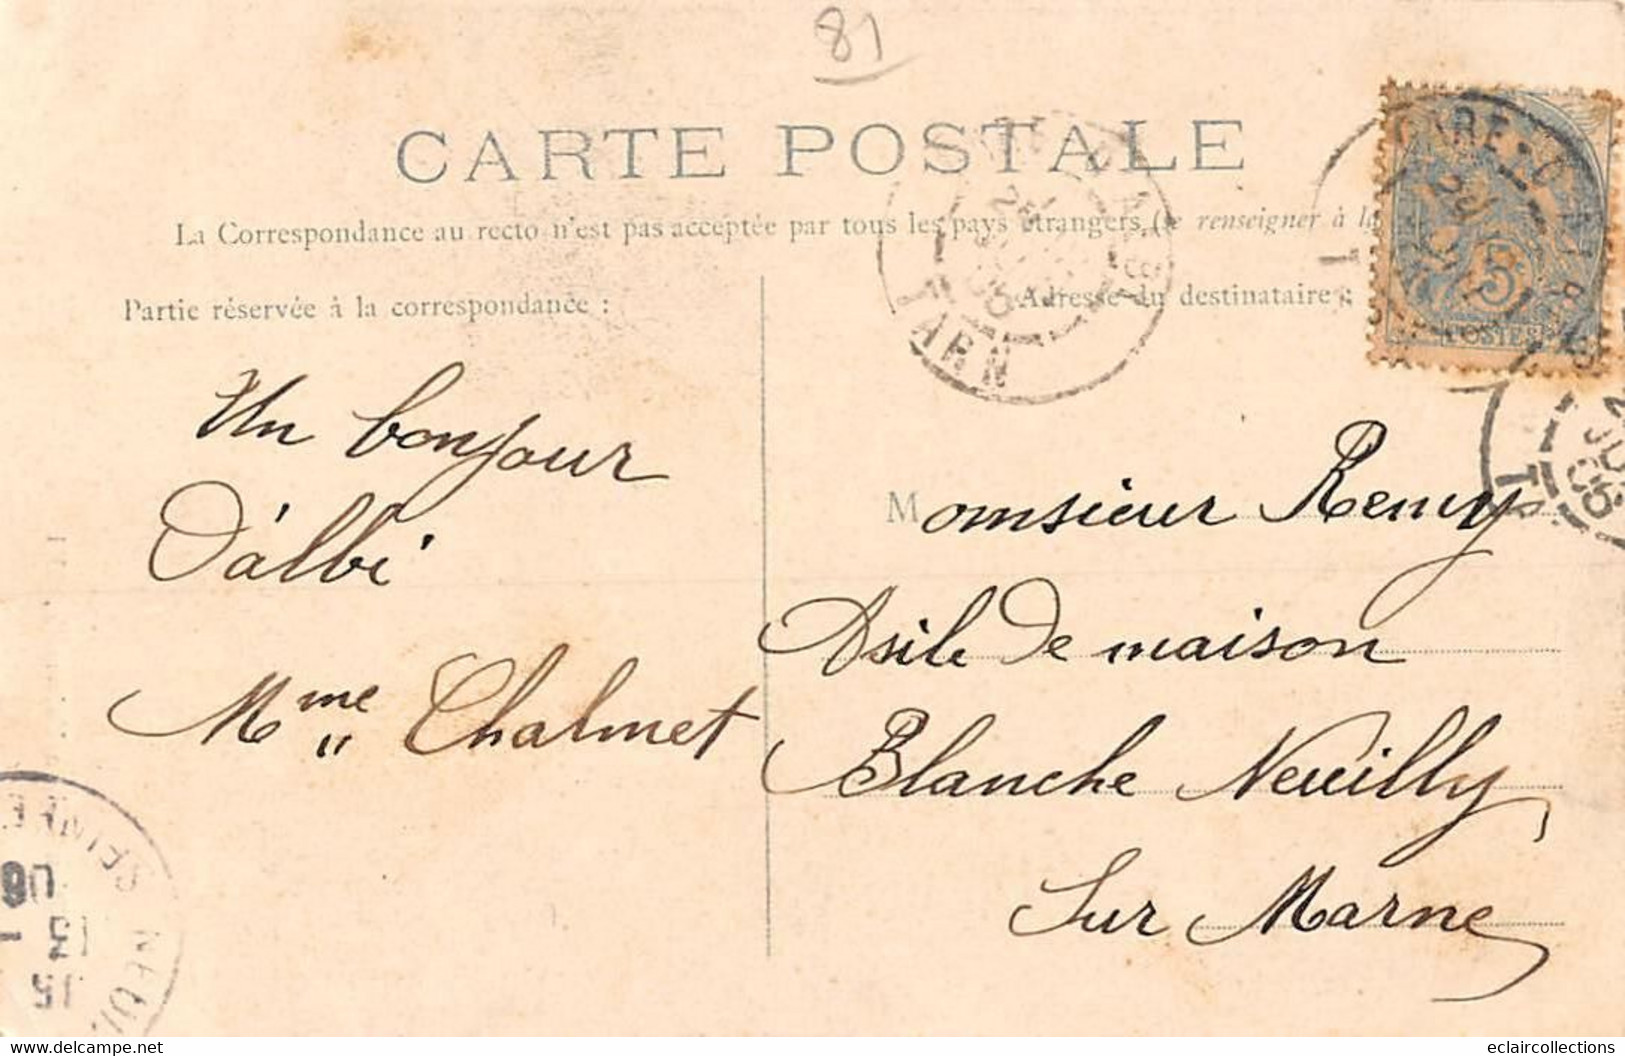 81
CARTE POSTALE
La Correspondance au recto n'est pas acceptée par tous les pays étrangers (se renseigner à la
Partie réservée à la correspondance :
Adresse du destinataire :
TARN
5
POSTES
Un bonjour
D'albi
Mme Chalmet
Monsieur Remy
Asile de maison
Blanche Neuilly
Sur Marne
delcampe.net
eclaircollections